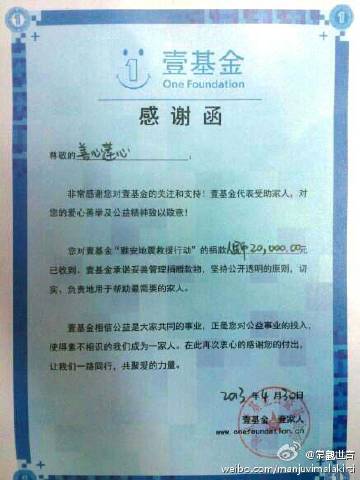 壹基金
One Foundation
感谢函
尊敬的 善心莲心 :
非常感谢您对壹基金的关注和支持!壹基金代表受助家人,对
您的爱心善举及公益精神致以敬意!
您对壹基金“雅安地震救援行动”的捐款人民币20,000.00元
已收到,壹基金承诺妥善管理捐赠款物,坚持公开透明的原则,切
实、负责地用于帮助最需要的家人。
壹基金相信公益是大家共同的事业,正是您对公益事业的投入,
使得素不相识的我们成为一家人。在此再次衷心的感谢您的付出,
让我们一路同行,共聚爱的力量。
2013年4月30日
壹基金 壹家人
www.onefoundation.cn
weibo.com/manjuvimalakirti